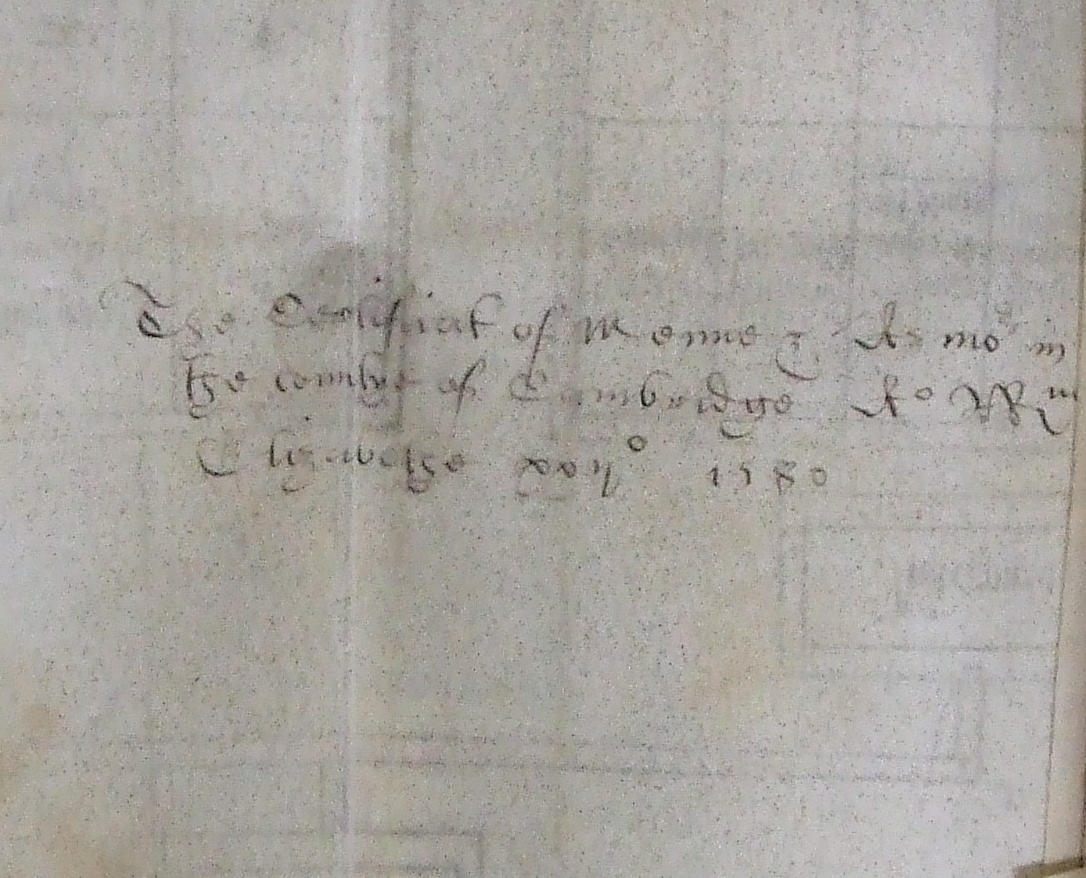 The Certificat of Menne & Armor in
the countye of Cambridge Ao RRne
Elizabethe xxijo 1580